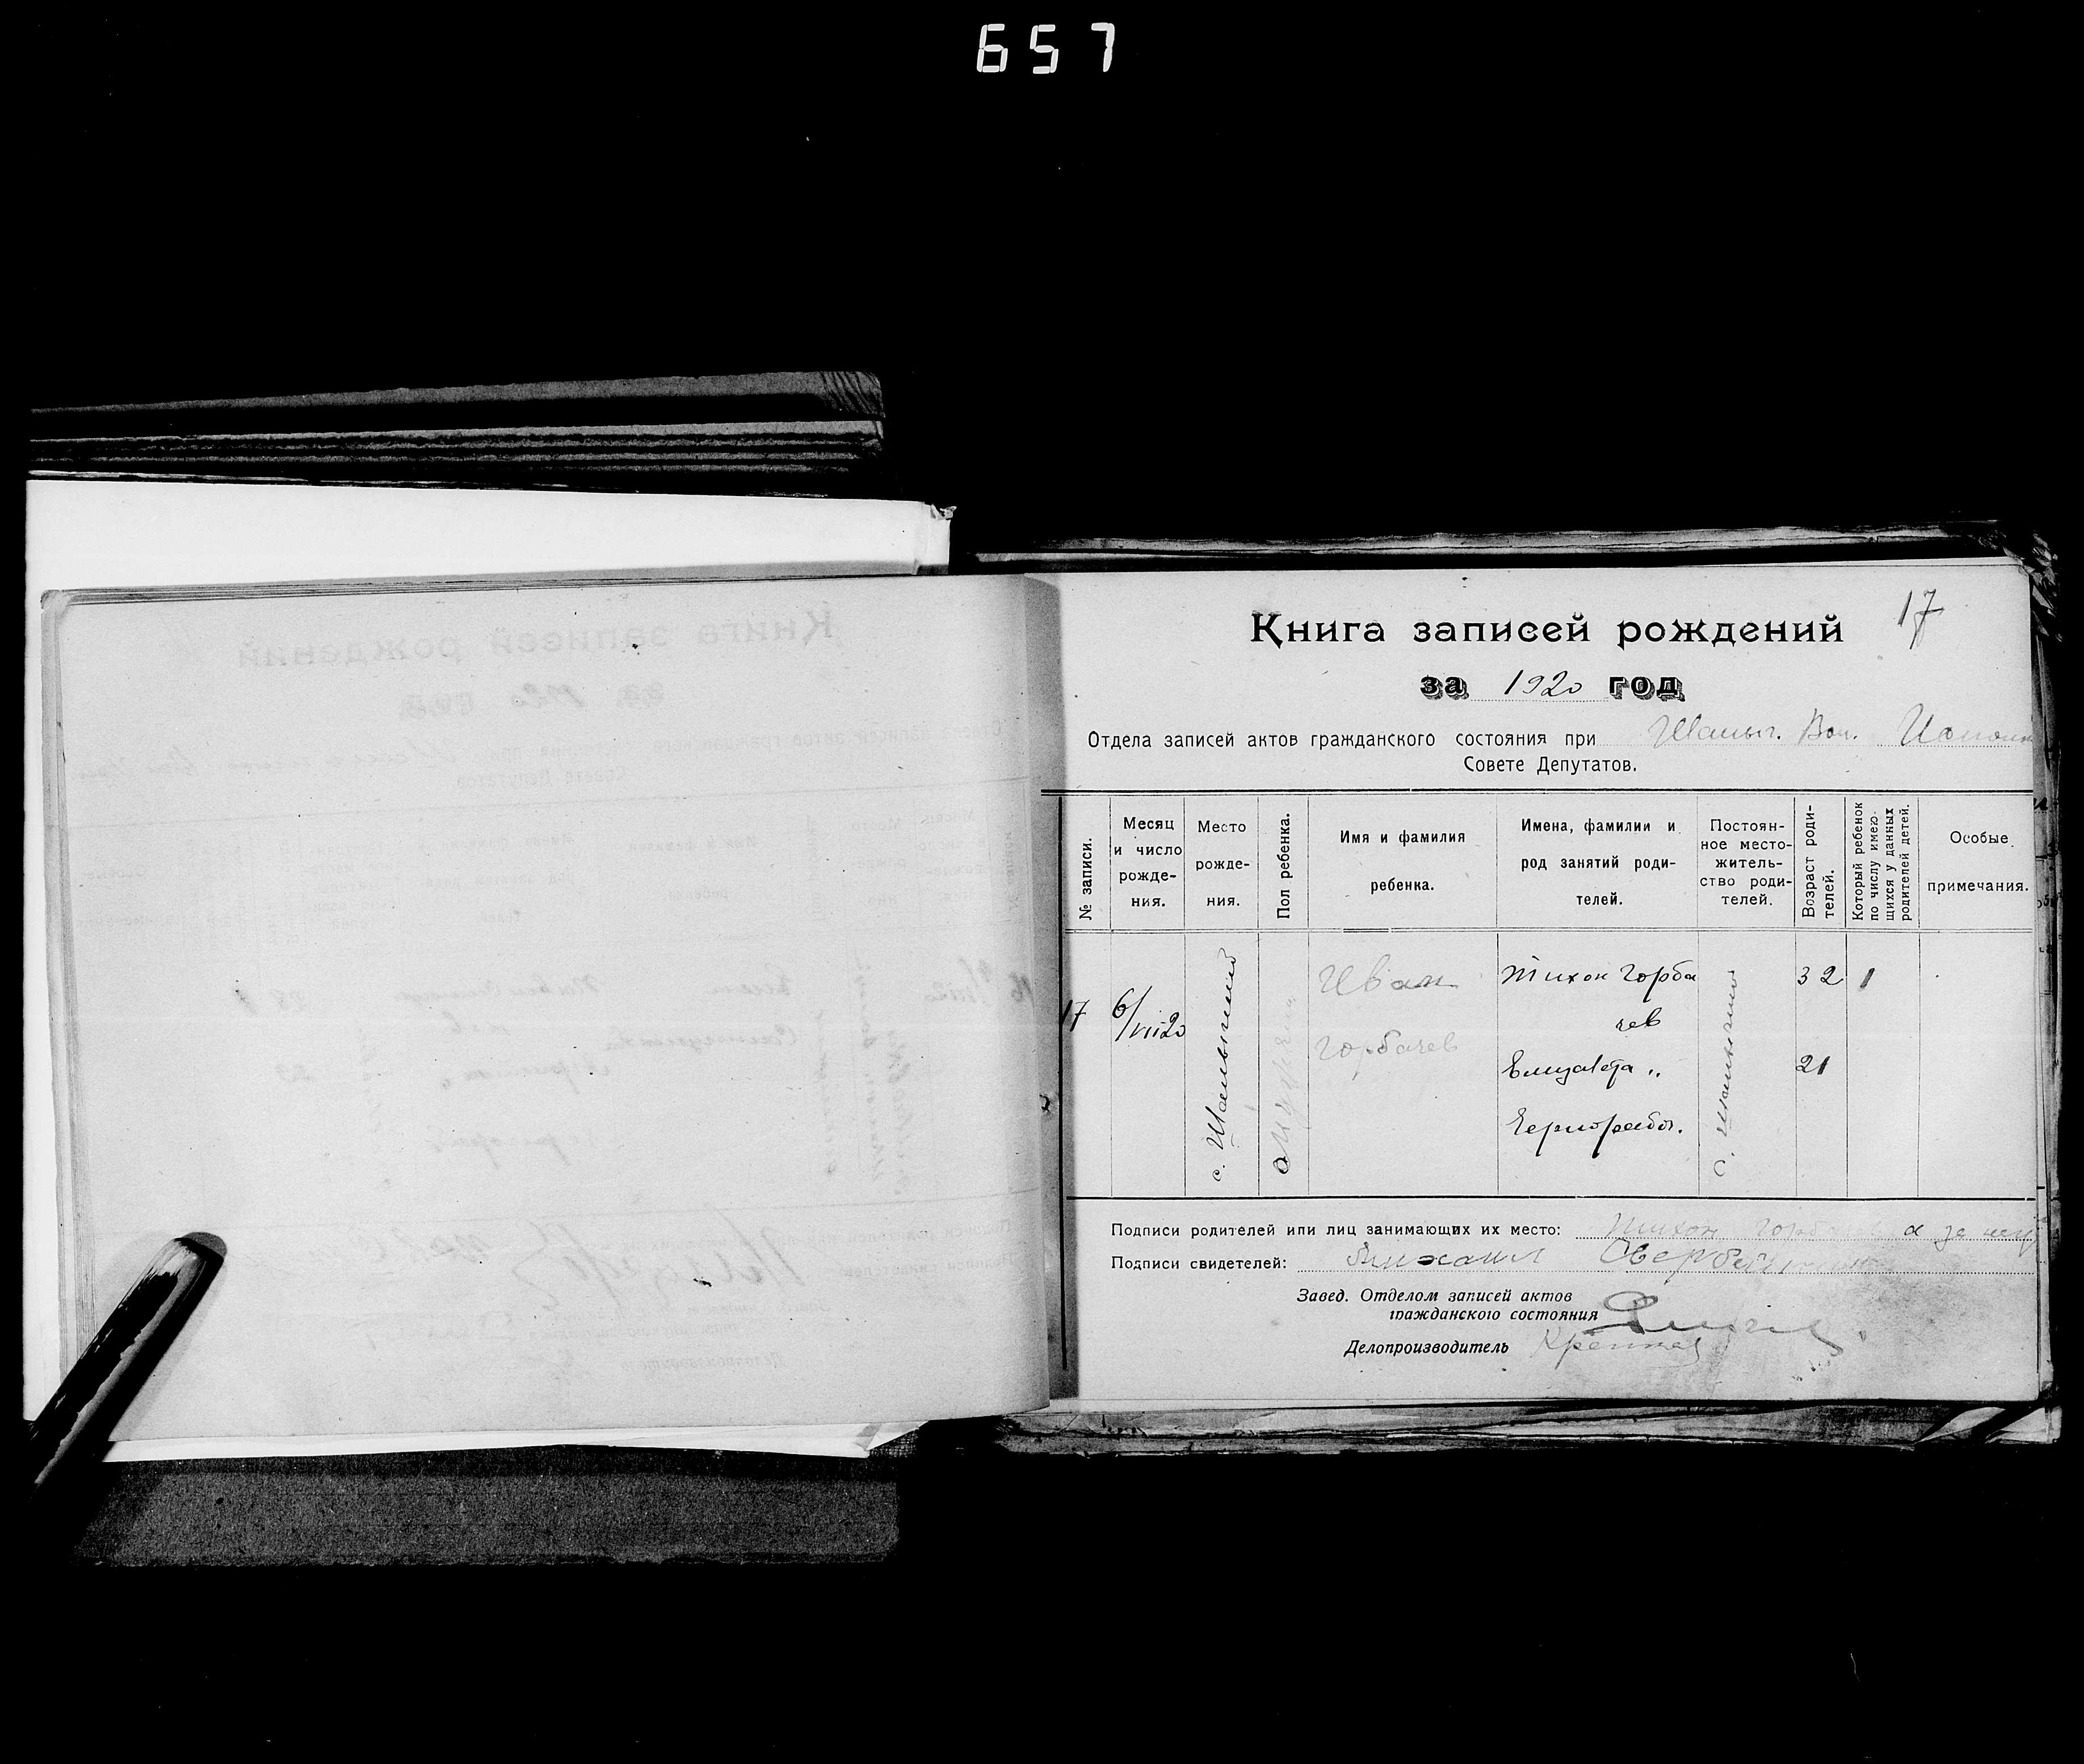 657
17
Книга записей рождений
за 1920 год
Отдела записей актов гражданского состояния при Шалыг. Вол. Исполк
Совете Депутатов.
№ записи.
Месяц и число рожде- ния.
Место рожде- ния.
Пол ребенка.
Имя и фамилия ребенка.
Имена, фамилии и род занятий роди- телей.
Постоян- ное место- житель- ство роди- телей.
Возраст роди- телей.
Который ребенок по числу имею- щихся у данных родителей детей.
Особые примечания.
17
6/VIII 20
с. Шалыгино
Мужской
Иван
Горбачев
Тихон Горба
чев
Елизавета „
Чернораб.
с. Шалыгино
32
21
1
Подписи родителей или лиц занимающих их место: Тихон Горбачев а за него
Подписи свидетелей: Михаил
Завед. Отделом записей актов
гражданского состояния
Делопроизводитель